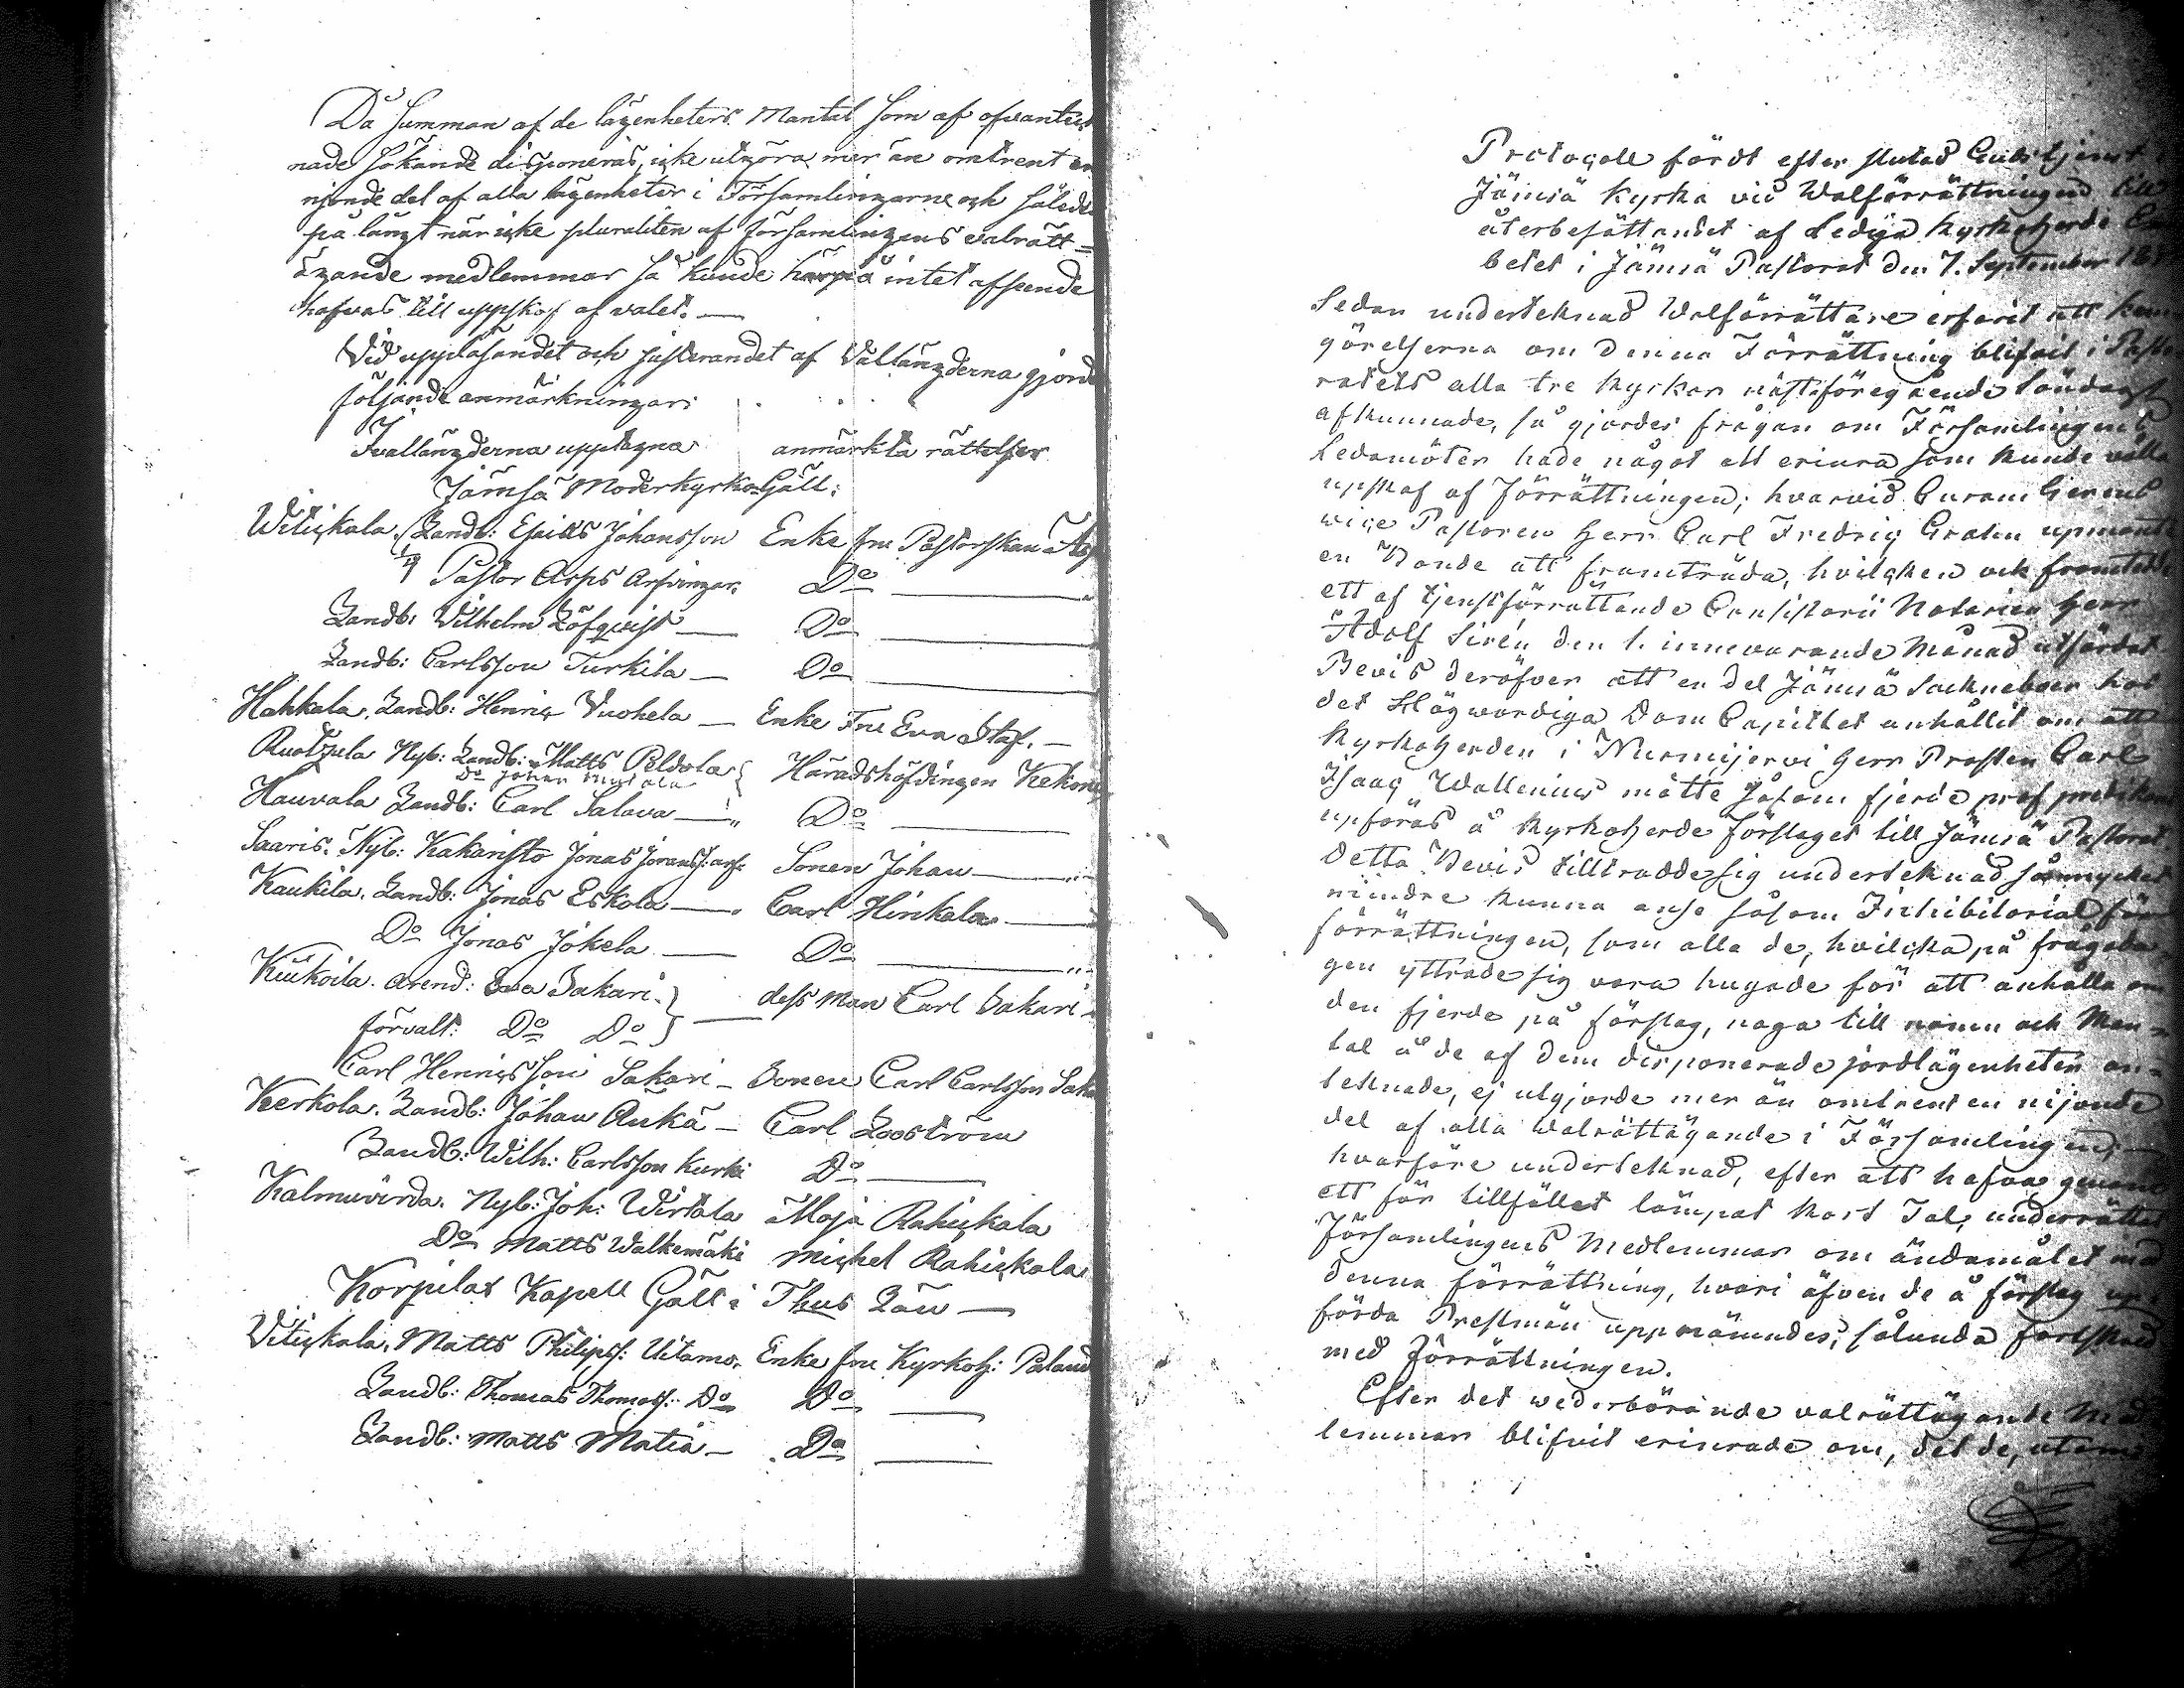 Då summan af de lägenheters Mantal som af ofvanteck
nade sökande disponeras, icke utgöra mer än omtrent en
nionde del af alla lägenheter i Församlingarne och således
på långt när icke pluraliten af församlingens valrätt=
ägande medlemmar så kunde härpå intet afseende
hafvas till uppskof af valet. —
Vid uppläsandet och justerandet af Vallängderna gjordes
följande anmärkningar:
I vallängderna upptagna anmärkta rättelser
Jämsä Moderkyrko-Gäll:
Witickala. Landb: Esaias Johansson Enke fru Pastorskan Asp
1/4 Pastor Asps Arfvingar. Do —
Landb: Wilhelm Löfqvist — Do —
Landb: Carlsson Turkila — Do —
Hahkala. Landb: Henric Vuohela — Enke Fru Eva Staf. —
Ruotzula Nyb: Landb: Matts Peldola Häradshöfdingen Kekoni
Do Johan
Hauvala Landb: Carl Salava — Do —
Saaris. Nyb: Kakaristo Jonas Joranss: arf: Sonen Johan —
Kaukila. Landb: Jonas Eskola — Carl Hinkala —
Do Jonas Jokela — Do —
Kukoila. arend: Eva Sakari. } — dess man Carl Sakari
förvalt: Do Do }
Carl Henricsson Sakari — Sonen Carl Carlsson Saka
Kerkola. Landb: Johan Anka — Carl Looström
Landb: Wilh: Carlsson Kurki Do —
Kalmavirda. Nyb: Joh: Wirtala Maja Rahickala
Do Matts Walkemäki Michel Rahickala
Korpilax Kapell Gäll i Thus Län —
Vitickala. Matts Philipss: Uitamo. Enke fru Kyrkoh: Paland
Landb: Thomas Thomass: Do Do —
Landb: Matts Matia — Do —
Protocoll fördt efter slutad Gudstjenst i
Jämsä Kyrka vid Walförrättningen till
återbesättandet af Lediga Kyrkoherde Em
betet i Jämsä Pastorat den 7. September 18
Sedan undertecknad Walförrättare erfarit att kun
görelserna om denna Förrättning blifvit i Pasto
ratets alla tre Kyrkor nästföregående Söndagar
afkunnade, så gjordes frågan om Församlingens
Ledamöter hade något att erinra som kunde vålla
upskof af Förrättningen; hvarvid Curam Gerens
vice Pastoren Herr Carl Fredric Grahn upmante
en Bonde att framträda, hvilcken ock framtedde
ett af tjenstförrättande Consistorii Notarien Herr
Adolf Sirén den 1. innevarande Månad utfärdat
Bevis deröfver att en del Jämsä Sockneboer hos
det Högwördiga Dom Capitlet anhållit om att
Kyrkoherden i Nurmijervi Herr Prosten Carl
Isaac Wallenius måtte såsom fjerde prof predikant
upföras å Kyrkoherde förslaget till Jämsä Pastorat.
Detta Bevis tilltrodde sig undertecknad så mycket
mindre kunna anse såsom Inhibitorial för
förrättningen, som alla de, hvilcka på frågeda
gen yttrade sig vara hugade för att anhålla om
den fjerde på förslag, noga till namn och Man-
tal å de af dem disponerade jordlägenheten an-
teknade, ej utgjorde mer än omtrent en nijonde
del af alla Walrättägande i Församlingen;
hvarföre undertecknad, efter att hafva genom
ett för tillfället lämpat kort Tal, underrättat
Församlingens Medlemmar om ändamålet med
denna förrättning, hvari äfven de å förslag up-
förda Prestmän uppnämndes; sålunda fortskred
med Förrättningen.
Efter det wederbörande valrättägande Med
lemmar blifvit erinrade om, det de, utom